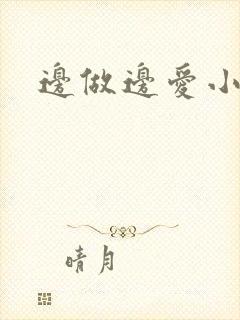 邊做邊愛小
晴月